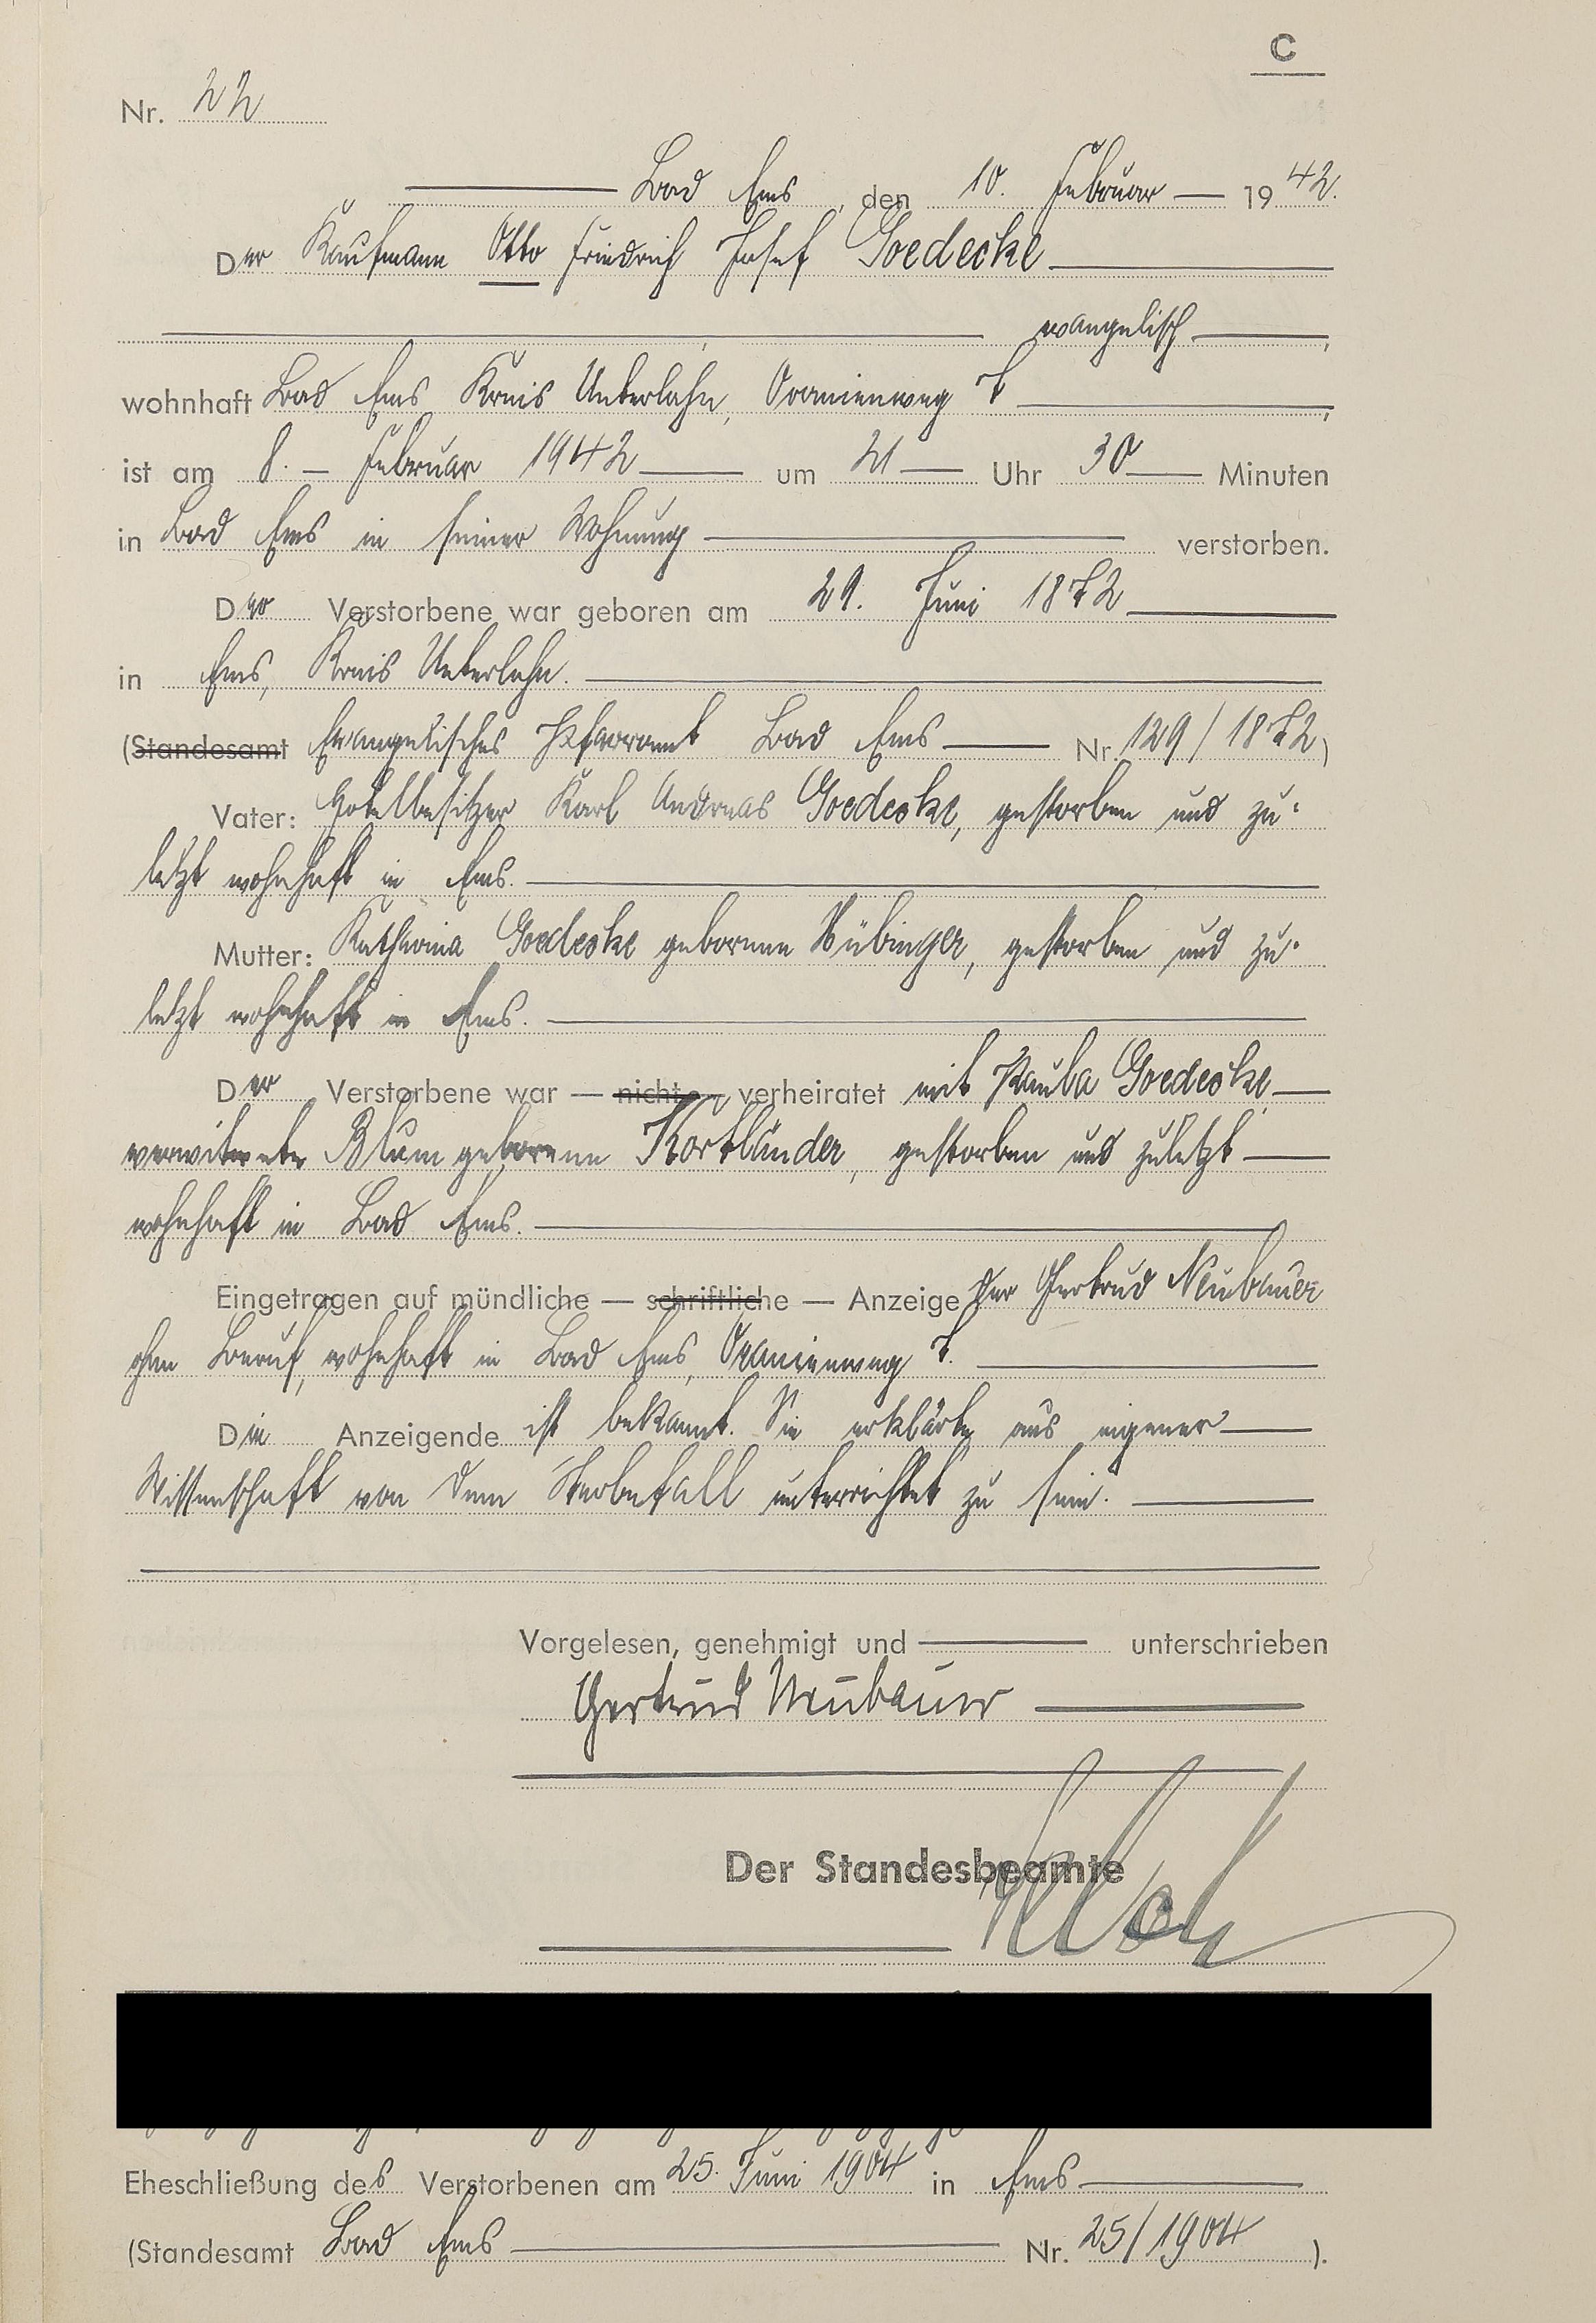 C
Nr. 22
Bad Ems, den 10. Februar 1942.
Der Kaufmann Otto Friedrich Josef Goedecke
evangelisch,
wohnhaft Bad Ems Kreis Unterlahn, Oranienweg 7,
ist am 8. Februar 1942 um 21 Uhr 30 Minuten
in Bad Ems in seiner Wohnung verstorben.
Der Verstorbene war geboren am 29. Juni 1872
in Ems, Kreis Unterlahn.
(Standesamt Evangelisches Pfarramt Bad Ems Nr. 129/1872)
Vater: Hotelbesitzer Karl Andreas Goedecke, gestorben und zu-
letzt wohnhaft in Ems.
Mutter: Katharina Goedecke geborene Hübinger, gestorben und zu-
letzt wohnhaft in Ems.
Der Verstorbene war — nicht — verheiratet mit Paula Goedecke
verwitwete Blum geborene Kortländer, gestorben und zuletzt
wohnhaft in Bad Ems.
Eingetragen auf mündliche — schriftliche — Anzeige der Gertrud Neubauer
ohne Beruf, wohnhaft in Bad Ems, Oranienweg 7.
Die Anzeigende ist bekannt. Sie erklärte aus eigener
Wissenschaft von dem Sterbefall unterrichtet zu sein.
Vorgelesen, genehmigt und unterschrieben
Gertrud Neubauer
Der Standesbeamte
Eheschließung des Verstorbenen am 25. Juni 1904 in Ems
(Standesamt Bad Ems Nr. 25/1904).